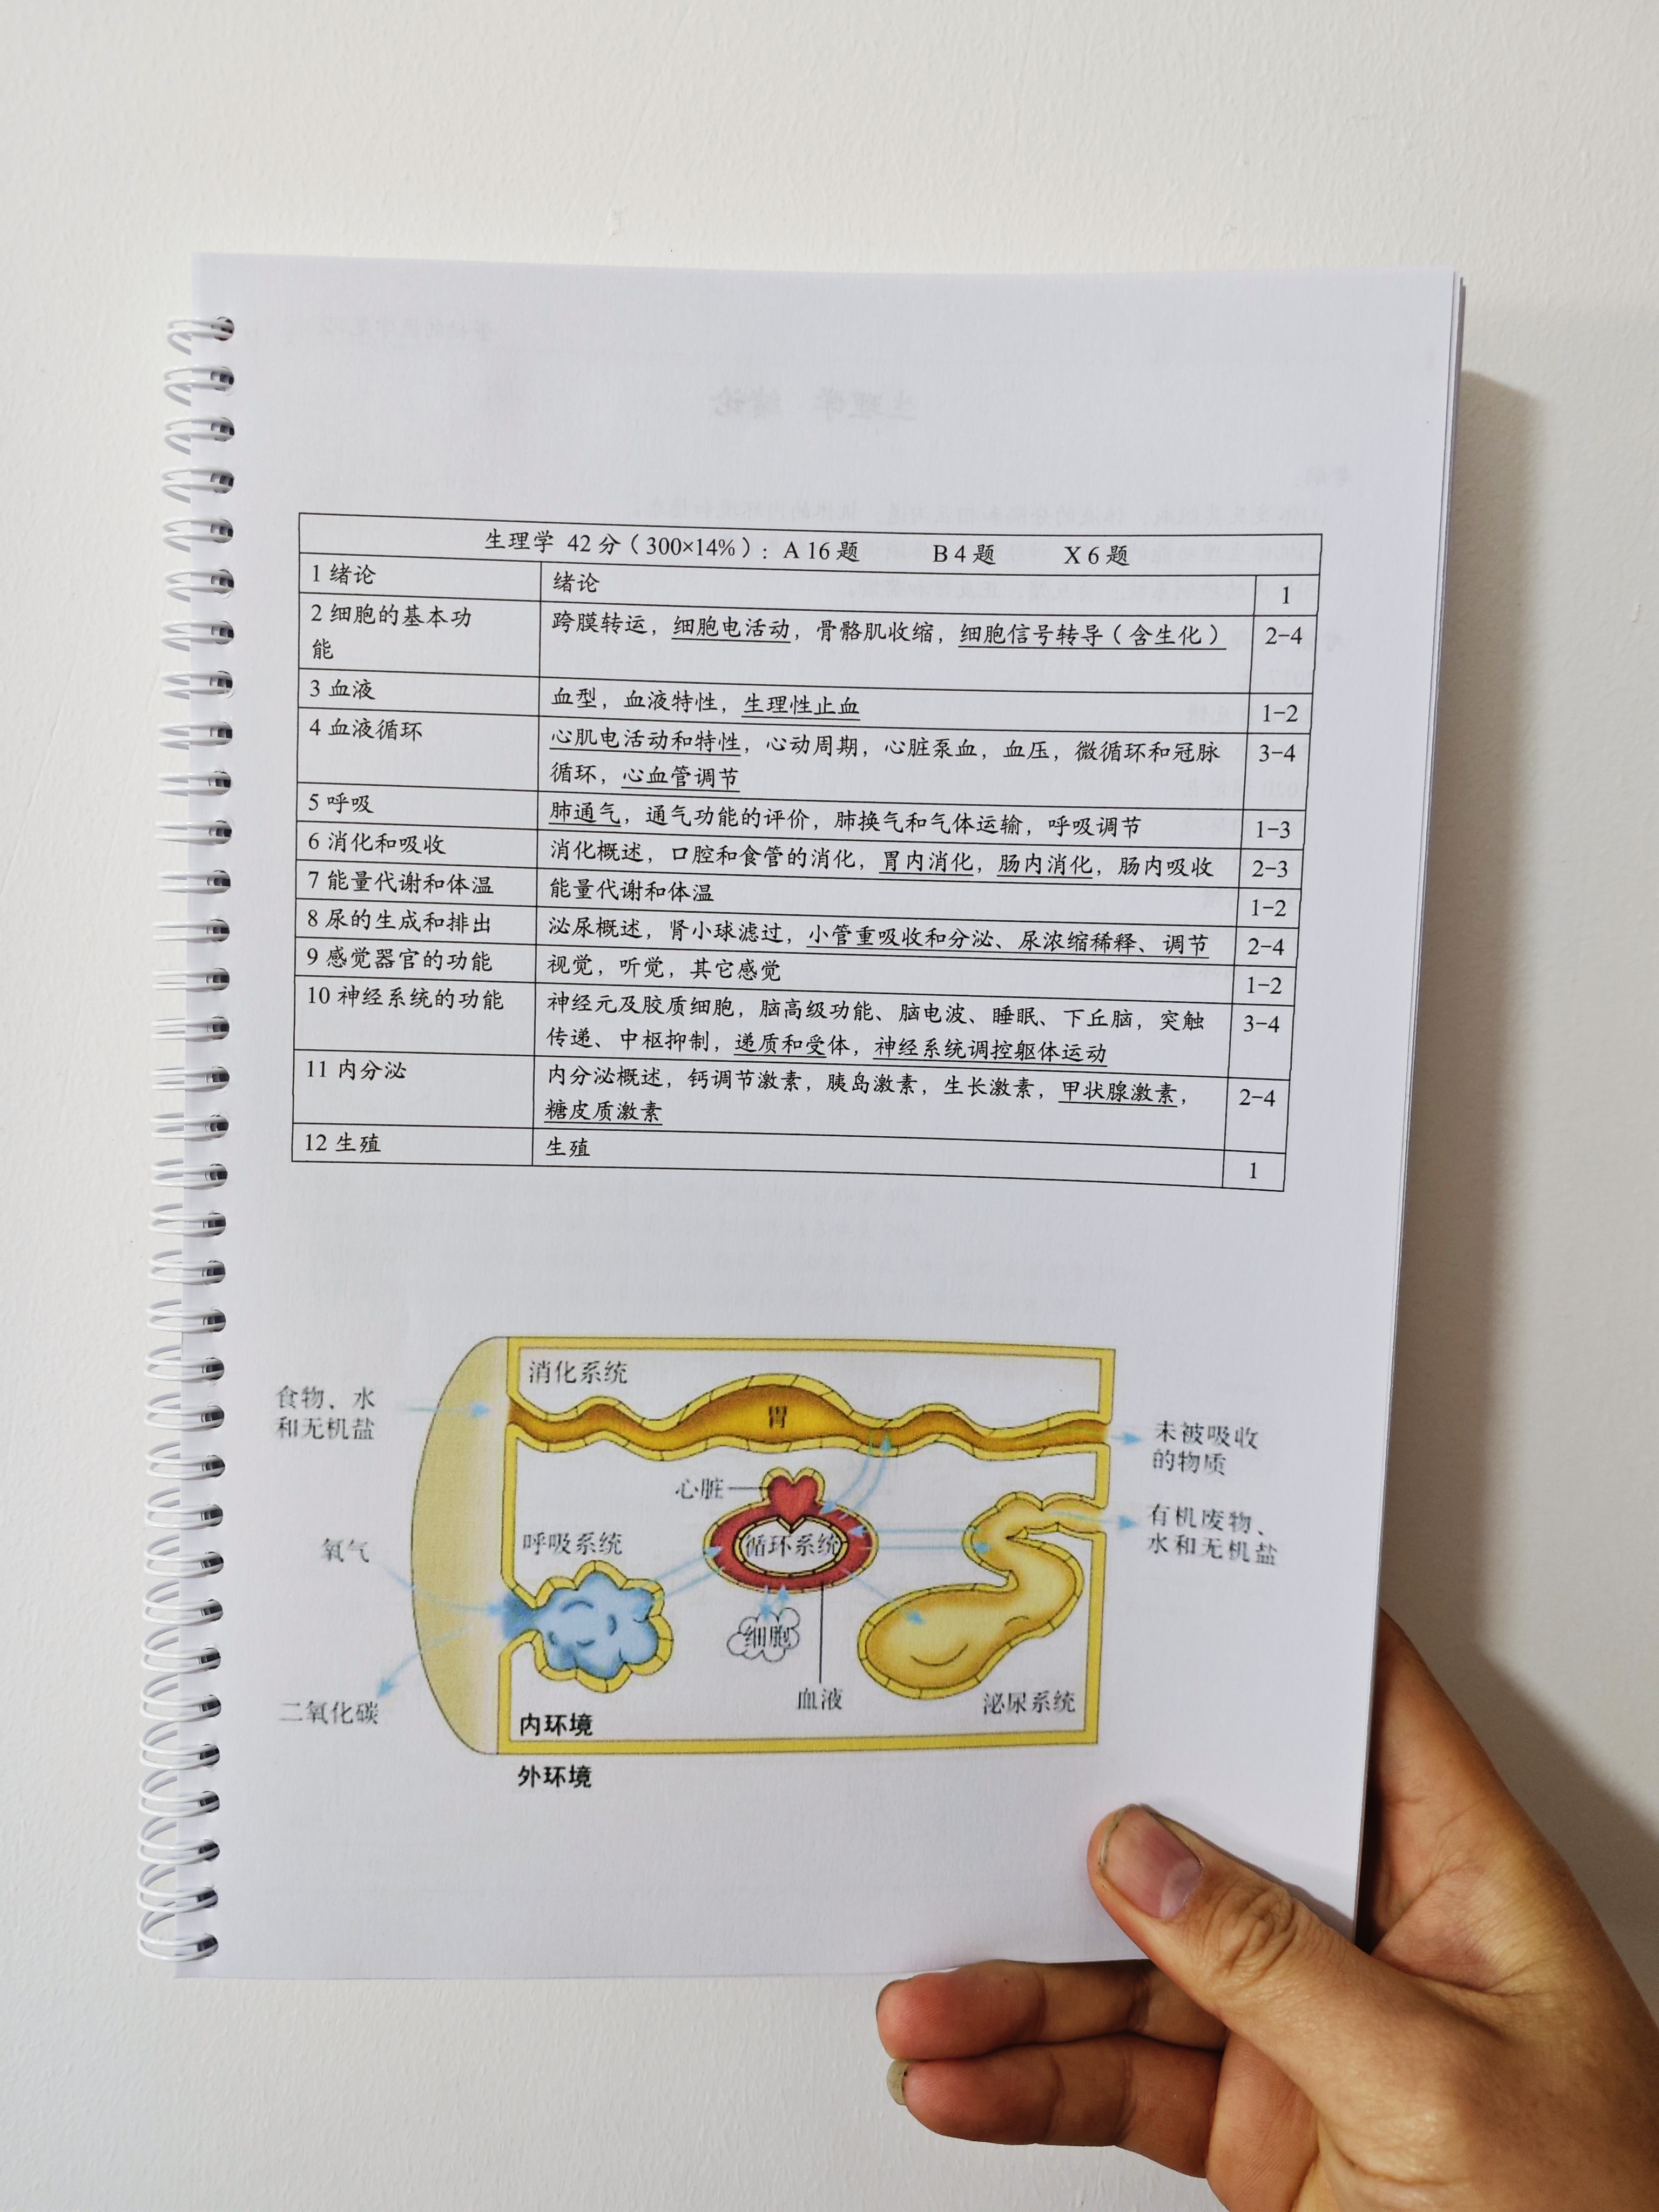 生理学 42分（300×14%）：A 16题 B 4题 X 6题
1 绪论 绪论 1
2 细胞的基本功
能
跨膜转运，细胞电活动，骨骼肌收缩，细胞信号转导（含生化） 2-4
3 血液 血型，血液特性，生理性止血 1-2
4 血液循环 心肌电活动和特性，心动周期，心脏泵血，血压，微循环和冠脉
循环，心血管调节 3-4
5 呼吸 肺通气，通气功能的评价，肺换气和气体运输，呼吸调节 1-3
6 消化和吸收 消化概述，口腔和食管的消化，胃内消化，肠内消化，肠内吸收 2-3
7 能量代谢和体温 能量代谢和体温 1-2
8 尿的生成和排出 泌尿概述，肾小球滤过，小管重吸收和分泌、尿浓缩稀释、调节 2-4
9 感觉器官的功能 视觉，听觉，其它感觉 1-2
10 神经系统的功能 神经元及胶质细胞，脑高级功能、脑电波、睡眠、下丘脑，突触
传递、中枢抑制，递质和受体，神经系统调控躯体运动 3-4
11 内分泌 内分泌概述，钙调节激素，胰岛激素，生长激素，甲状腺激素，
糖皮质激素 2-4
12 生殖 生殖 1
消化系统
食物、水
和无机盐
胃
未被吸收
的物质
心脏
有机废物、
水和无机盐
氧气
呼吸系统
循环系统
细胞
血液
泌尿系统
二氧化碳
内环境
外环境